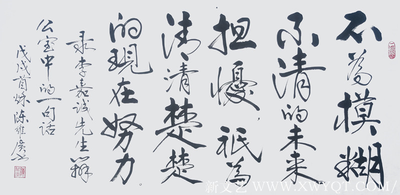 不為模糊
不清的未来
担憂祇為
清清楚楚
的現在努力
录李嘉诚先生辦
公室中的一句话
戊戌首秋陈
新文艺 WWW.XWYQT.COM